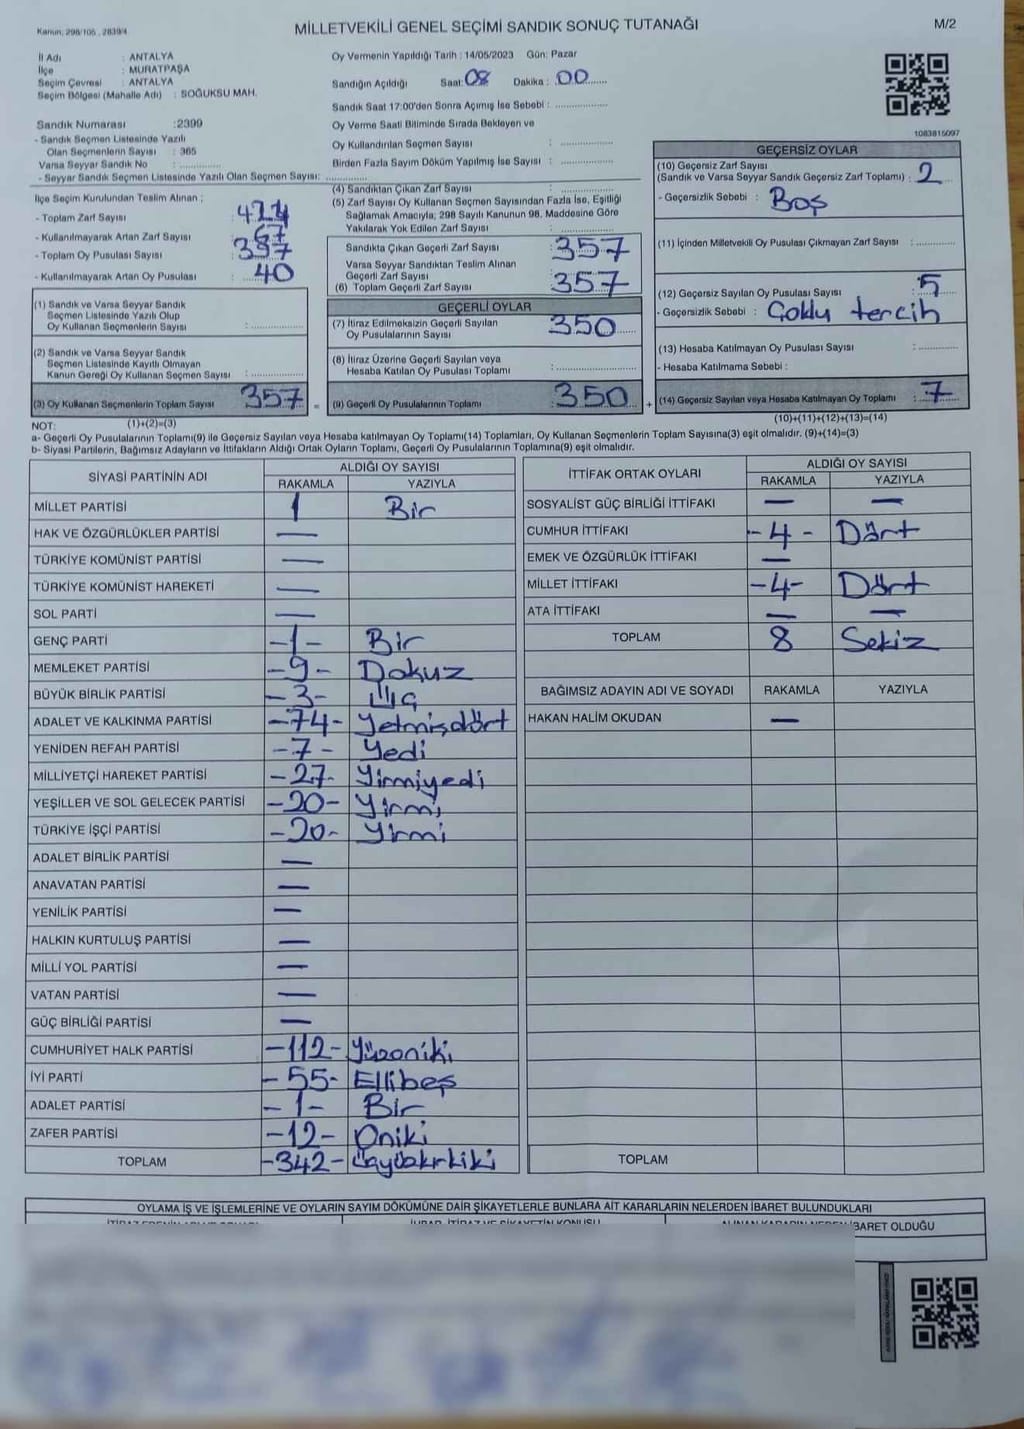 Kanun: 298/105, 2839/4
MİLLETVEKİLİ GENEL SEÇİMİ SANDIK SONUÇ TUTANAĞI
M/2
İl Adı : ANTALYA
İlçe : MURATPAŞA
Seçim Çevresi : ANTALYA
Seçim Bölgesi (Mahalle Adı) : SOĞUKSU MAH.
Oy Vermenin Yapıldığı Tarih : 14/05/2023 Gün: Pazar
Sandığın Açıldığı Saat: 08 Dakika : 00
Sandık Saat 17:00'den Sonra Açımış İse Sebebi :
Sandık Numarası :2399
- Sandık Seçmen Listesinde Yazılı
Olan Seçmenlerin Sayısı : 365
Varsa Seyyar Sandık No :
- Seyyar Sandık Seçmen Listesinde Yazılı Olan Seçmen Sayısı:
Oy Verme Saati Bitiminde Sırada Bekleyen ve
Oy Kullandırılan Seçmen Sayısı :
Birden Fazla Sayım Döküm Yapılmış İse Sayısı :
1083815097
İlçe Seçim Kurulundan Teslim Alınan :
- Toplam Zarf Sayısı :
- Kullanılmayarak Artan Zarf Sayısı : 67
- Toplam Oy Pusulası Sayısı :
- Kullanılmayarak Artan Oy Pusulası : 40
(1) Sandık ve Varsa Seyyar Sandık
Seçmen Listesinde Yazılı Olup
Oy Kullanan Seçmenlerin Sayısı :
(2) Sandık ve Varsa Seyyar Sandık
Seçmen Listesinde Kayıtlı Olmayan
Kanun Gereği Oy Kullanan Seçmen Sayısı :
(3) Oy Kullanan Seçmenlerin Toplam Sayısı 357
(4) Sandıktan Çıkan Zarf Sayısı :
(5) Zarf Sayısı Oy Kullanan Seçmen Sayısından Fazla İse, Eşitliği
Sağlamak Amacıyla; 298 Sayılı Kanunun 98. Maddesine Göre
Yakılarak Yok Edilen Zarf Sayısı :
Sandıkta Çıkan Geçerli Zarf Sayısı : 357
Varsa Seyyar Sandıktan Teslim Alınan
Geçerli Zarf Sayısı :
(6) Toplam Geçerli Zarf Sayısı : 357
GEÇERLİ OYLAR
(7) İtiraz Edilmeksizin Geçerli Sayılan
Oy Pusulalarının Sayısı : 350
(8) İtiraz Üzerine Geçerli Sayılan veya
Hesaba Katılan Oy Pusulası Toplamı :
= (9) Geçerli Oy Pusulalarının Toplamı : 350 +
GEÇERSİZ OYLAR
(10) Geçersiz Zarf Sayısı
(Sandık ve Varsa Seyyar Sandık Geçersiz Zarf Toplamı) : 2
- Geçersizlik Sebebi : Boş
(11) İçinden Milletvekili Oy Pusulası Çıkmayan Zarf Sayısı :
(12) Geçersiz Sayılan Oy Pusulası Sayısı : 5
- Geçersizlik Sebebi : Çoklu tercih
(13) Hesaba Katılmayan Oy Pusulası Sayısı :
- Hesaba Katılmama Sebebi :
(14) Geçersiz Sayılan veya Hesaba Katılmayan Oy Toplamı : 7
NOT: (1)+(2)=(3)
(10)+(11)+(12)+(13)=(14)
a- Geçerli Oy Pusulalarının Toplamı(9) ile Geçersiz Sayılan veya Hesaba katılmayan Oy Toplamı(14) Toplamları, Oy Kullanan Seçmenlerin Toplam Sayısına(3) eşit olmalıdır. (9)+(14)=(3)
b- Siyasi Partilerin, Bağımsız Adayların ve İttifakların Aldığı Ortak Oyların Toplamı, Geçerli Oy Pusulalarının Toplamına(9) eşit olmalıdır.
SİYASİ PARTİNİN ADI ALDIĞI OY SAYISI
RAKAMLA YAZIYLA
MİLLET PARTİSİ 1 Bir
HAK VE ÖZGÜRLÜKLER PARTİSİ —
TÜRKİYE KOMÜNİST PARTİSİ —
TÜRKİYE KOMÜNİST HAREKETİ —
SOL PARTİ —
GENÇ PARTİ -1- Bir
MEMLEKET PARTİSİ -9- Dokuz
BÜYÜK BİRLİK PARTİSİ -3- Üç
ADALET VE KALKINMA PARTİSİ -74- Yetmişdört
YENİDEN REFAH PARTİSİ -7- Yedi
MİLLİYETÇİ HAREKET PARTİSİ -27- Yirmiyedi
YEŞİLLER VE SOL GELECEK PARTİSİ -20- Yirmi
TÜRKİYE İŞÇİ PARTİSİ -20- Yirmi
ADALET BİRLİK PARTİSİ —
ANAVATAN PARTİSİ —
YENİLİK PARTİSİ —
HALKIN KURTULUŞ PARTİSİ —
MİLLİ YOL PARTİSİ —
VATAN PARTİSİ —
GÜÇ BİRLİĞİ PARTİSİ —
CUMHURİYET HALK PARTİSİ -112- Yüzoniki
İYİ PARTİ -55- Ellibeş
ADALET PARTİSİ -1- Bir
ZAFER PARTİSİ -12- Oniki
TOPLAM -342-
İTTİFAK ORTAK OYLARI ALDIĞI OY SAYISI
RAKAMLA YAZIYLA
SOSYALİST GÜÇ BİRLİĞİ İTTİFAKI — —
CUMHUR İTTİFAKI -4- Dört
EMEK VE ÖZGÜRLÜK İTTİFAKI —
MİLLET İTTİFAKI -4- Dört
ATA İTTİFAKI — —
TOPLAM 8 Sekiz
BAĞIMSIZ ADAYIN ADI VE SOYADI RAKAMLA YAZIYLA
HAKAN HALİM OKUDAN —
TOPLAM
OYLAMA İŞ VE İŞLEMLERİNE VE OYLARIN SAYIM DÖKÜMÜNE DAİR ŞİKAYETLERLE BUNLARA AİT KARARLARIN NELERDEN İBARET BULUNDUKLARI
İBARET OLDUĞU